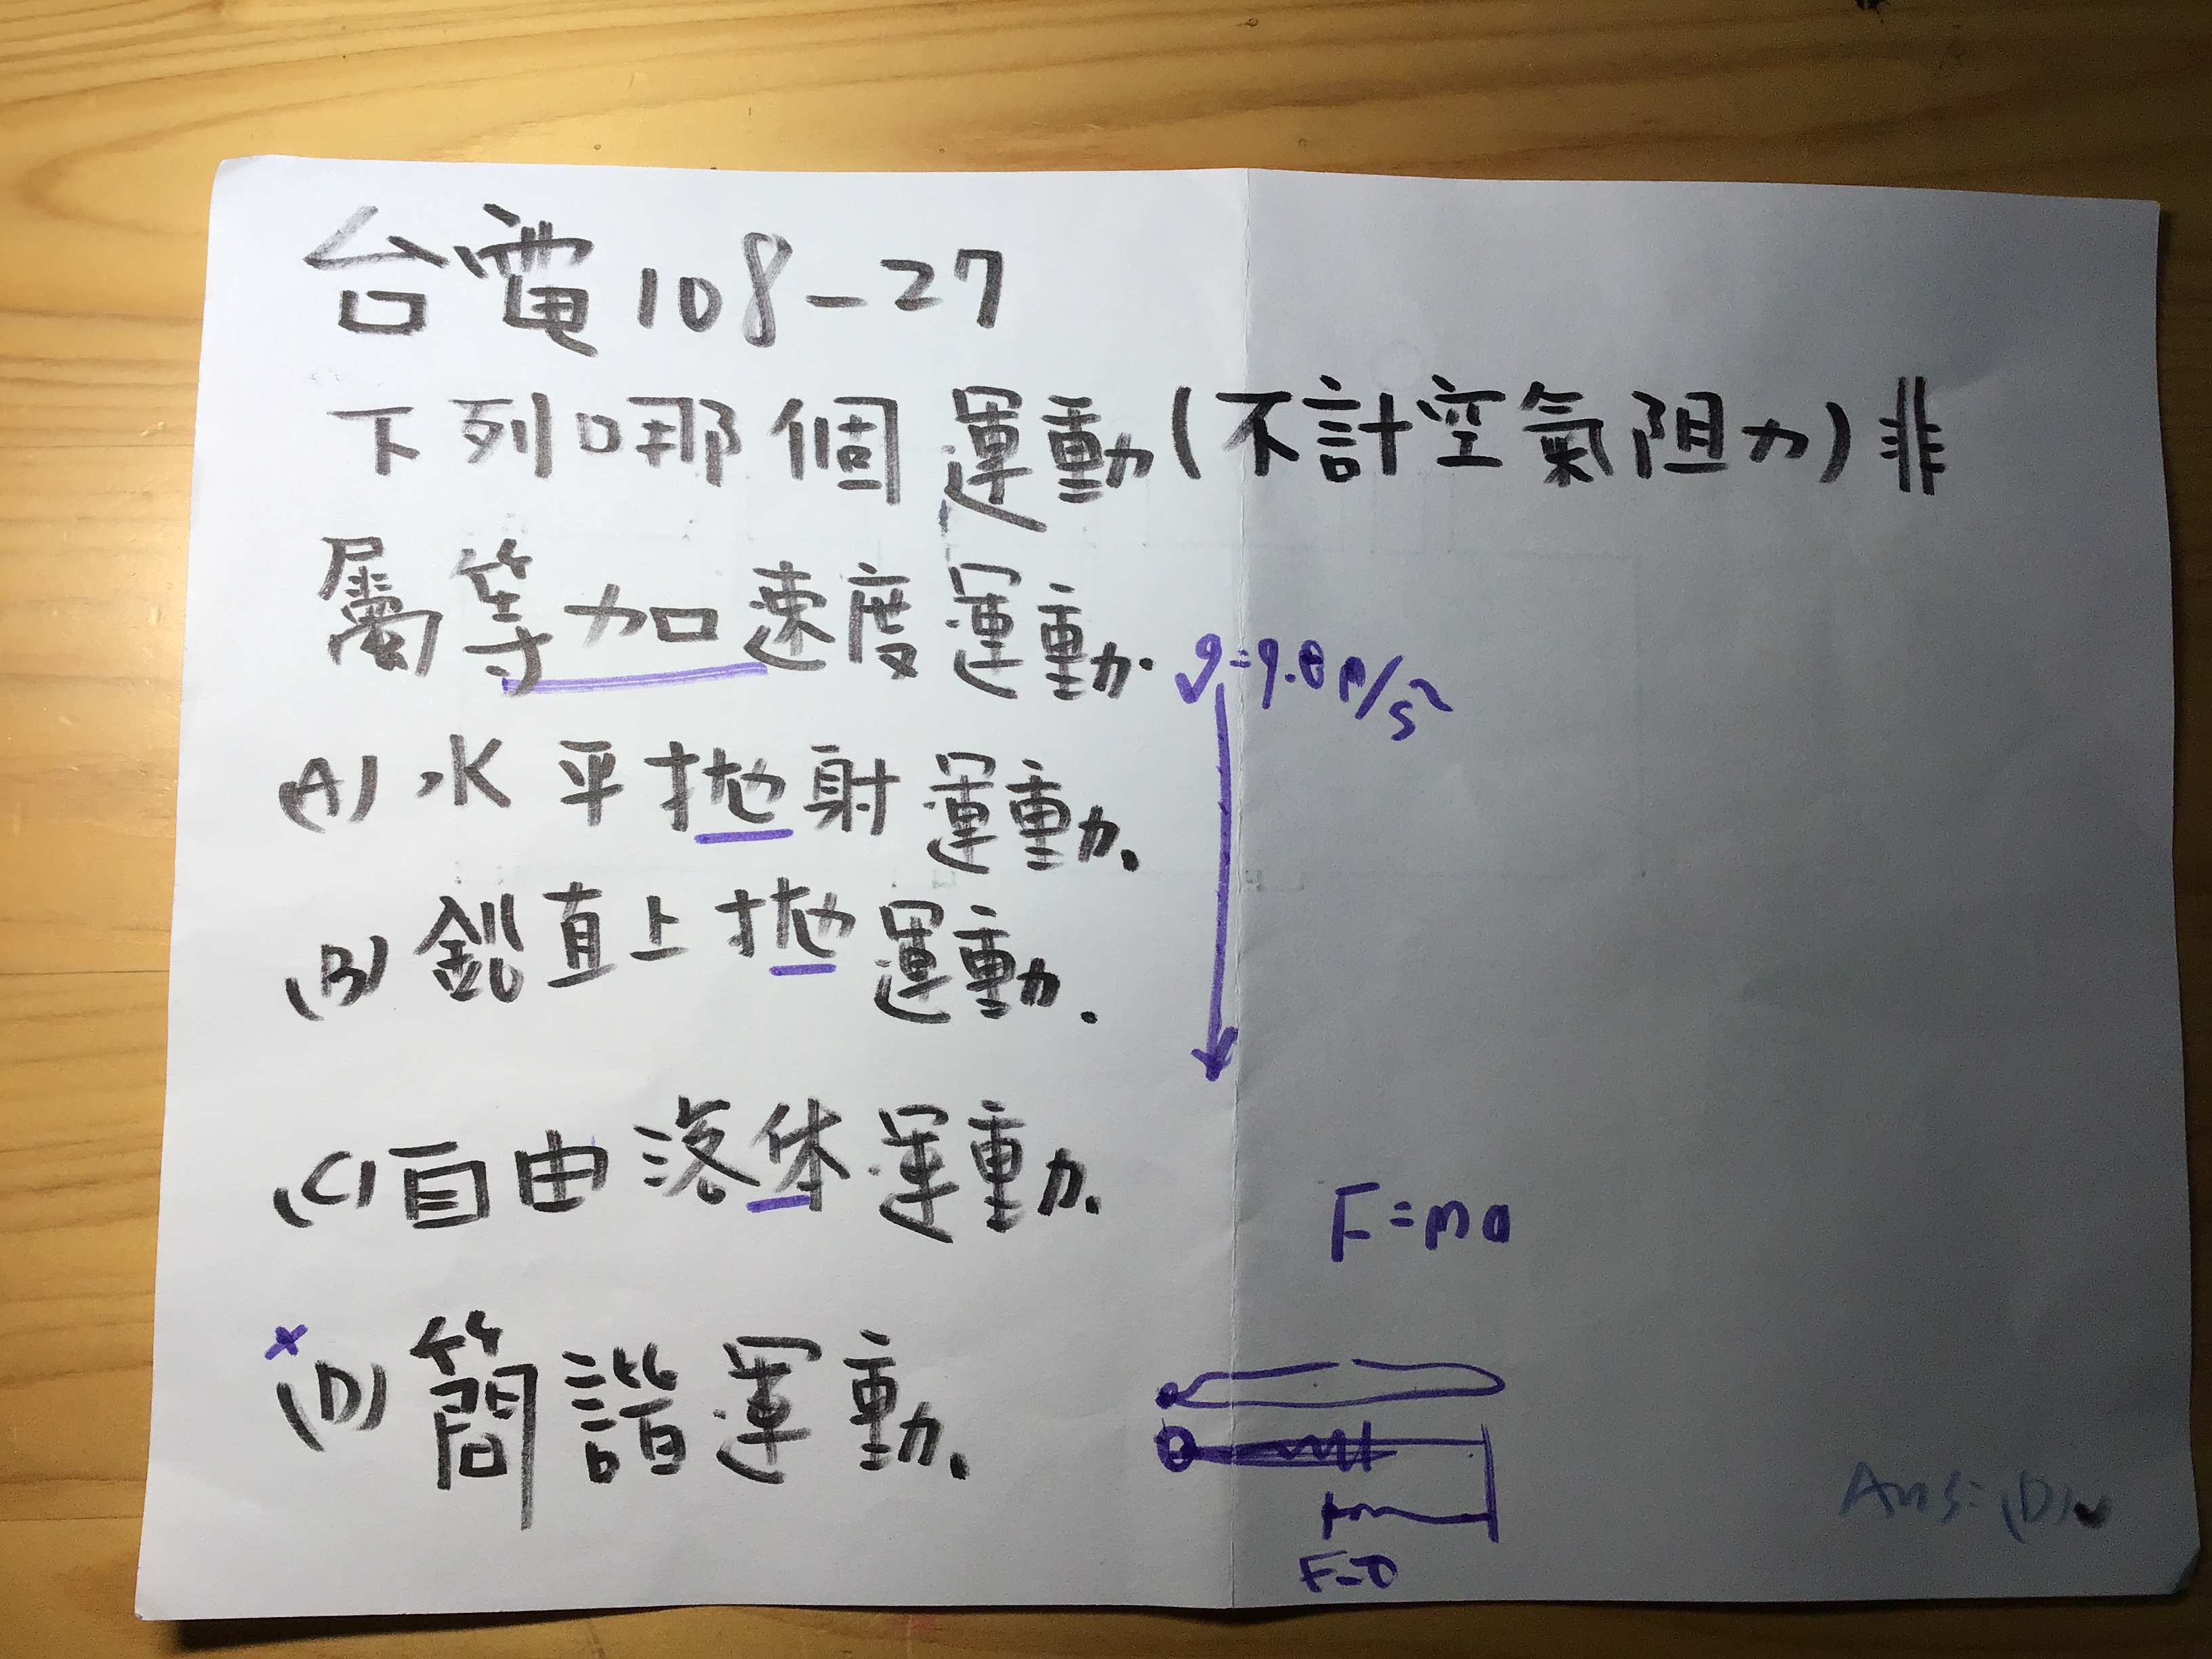 台電108-27
下列哪個運動(不計空氣阻力)非
屬等加速度運動.
g=9.8m/s²
(A)水平拋射運動.
(B)鉛直上拋運動.
(C)自由落体運動.
F=ma
(D)簡諧運動.
F=0
Ans:(D)